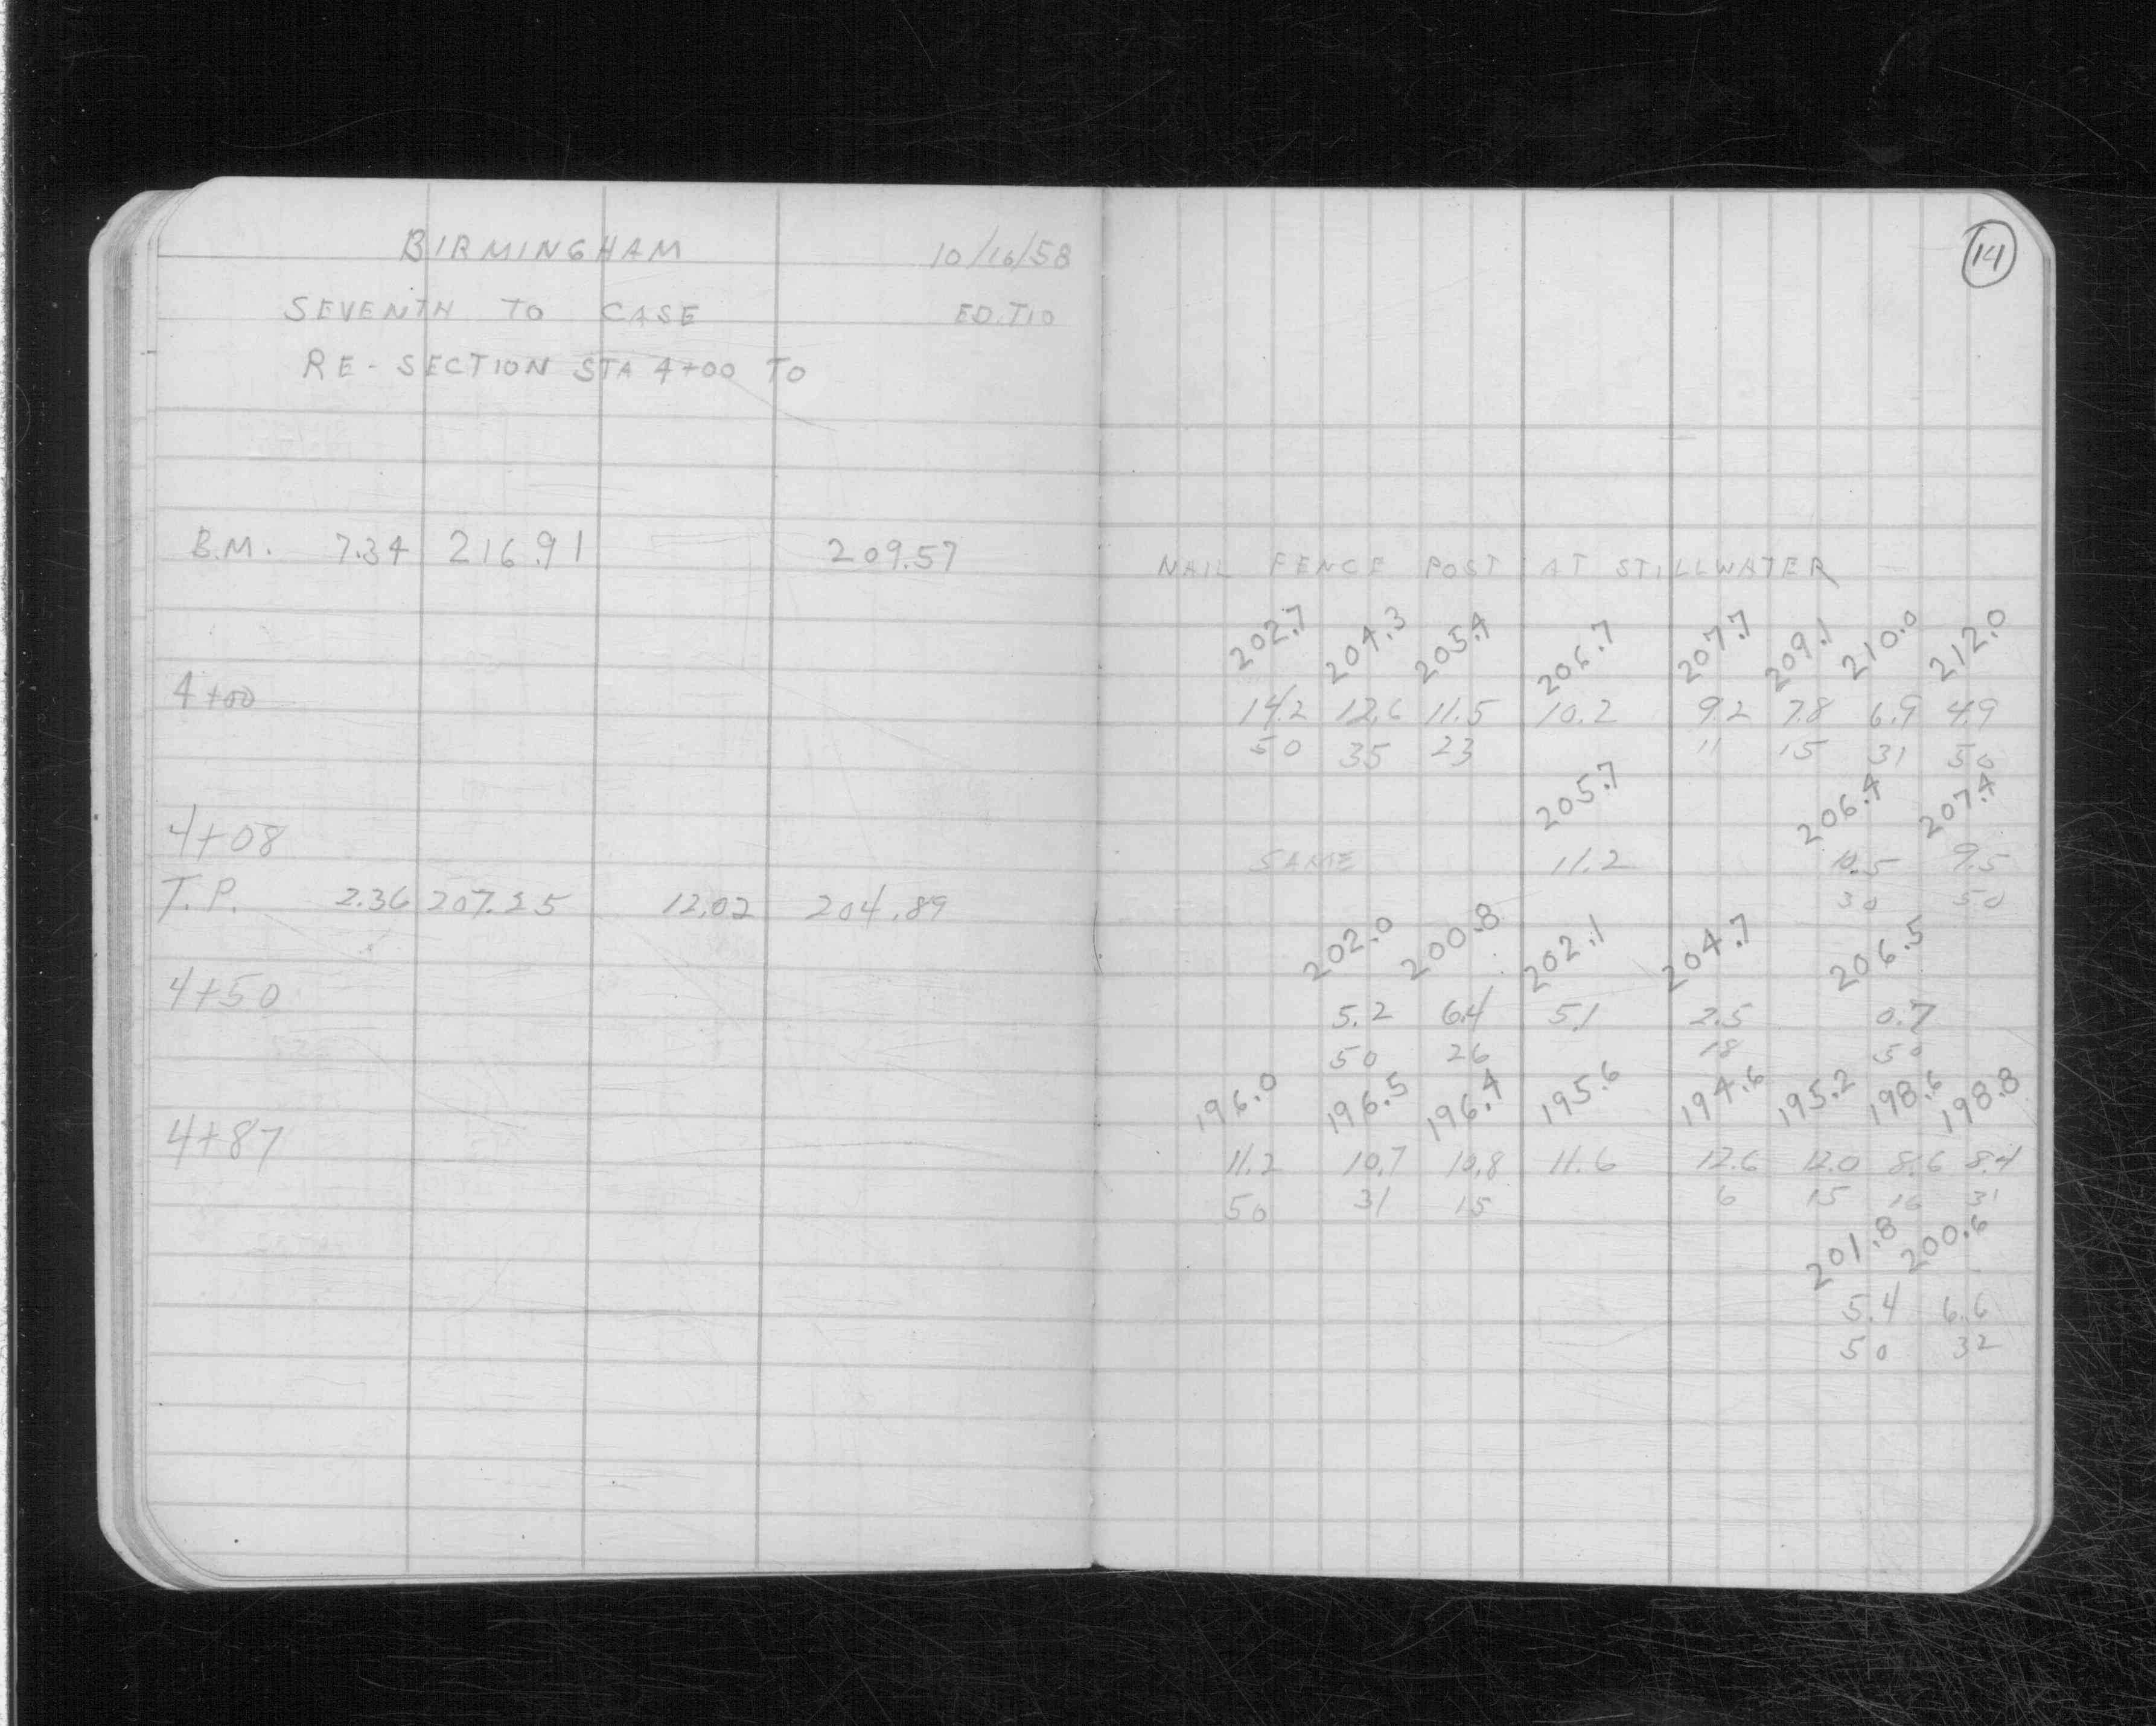 BIRMINGHAM 10/16/58
SEVENTH TO CASE
RE-SECTION STA 4+00 TO
B.M. 7.34 216.91 209.57
4+00
4+08
T.P. 2.36 207.25 12.02 204.89
4+50
4+87
14
NAIL FENCE POST AT STILLWATER
202.7 204.3 205.4 206.7 207.7 209.1 210.0 212.0
14.2 12.6 11.5 10.2 9.2 7.8 6.9 4.9
50 35 23 11 15 31 50
205.7 206.4 207.4
SAME 11.2 10.5 9.5
30 50
202.0 200.8 202.1 204.7 206.5
5.2 6.4 5.1 2.5 0.7
50 26 18 50
196.0 196.5 196.4 195.6 194.6 195.2 198.6 198.8
11.2 10.7 10.8 11.6 12.6 12.0 8.6 8.4
50 31 15 6 15 16 31
201.8 200.6
5.4 6.6
50 32